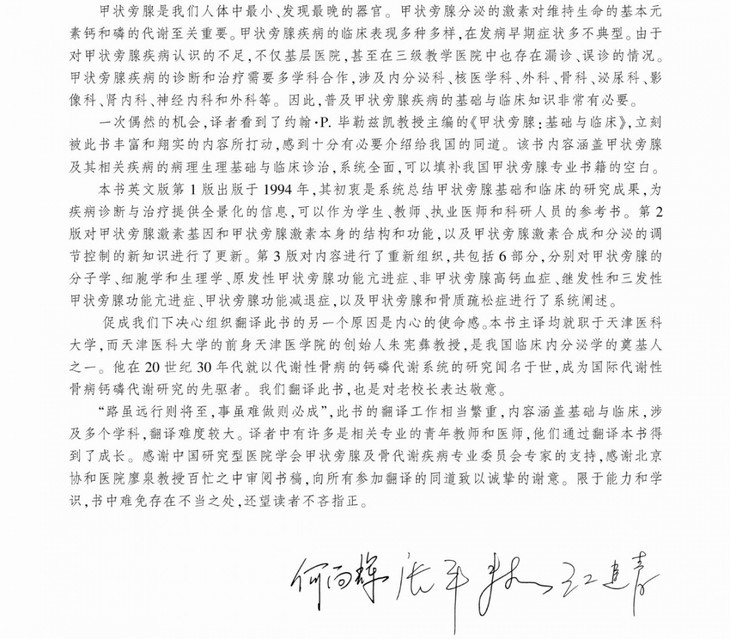 甲状旁腺是我们人体中最小、发现最晚的器官。甲状旁腺分泌的激素对维持生命的基本元
素钙和磷的代谢至关重要。甲状旁腺疾病的临床表现多种多样,在发病早期症状多不典型。由于
对甲状旁腺疾病认识的不足,不仅基层医院,甚至在三级教学医院中也存在漏诊、误诊的情况。
甲状旁腺疾病的诊断和治疗需要多学科合作,涉及内分泌科、核医学科、外科、骨科、泌尿科、影
像科、肾内科、神经内科和外科等。因此,普及甲状旁腺疾病的基础与临床知识非常有必要。
一次偶然的机会,译者看到了约翰·P. 毕勒兹凯教授主编的《甲状旁腺:基础与临床》,立刻
被此书丰富和翔实的内容所打动,感到十分有必要介绍给我国的同道。该书内容涵盖甲状旁腺
及其相关疾病的病理生理基础与临床诊治,系统全面,可以填补我国甲状旁腺专业书籍的空白。
本书英文版第 1 版出版于 1994 年,其初衷是系统总结甲状旁腺基础和临床的研究成果,为
疾病诊断与治疗提供全景化的信息,可以作为学生、教师、执业医师和科研人员的参考书。第 2
版对甲状旁腺激素基因和甲状旁腺激素本身的结构和功能,以及甲状旁腺激素合成和分泌的调
节控制的新知识进行了更新。第 3 版对内容进行了重新组织,共包括 6 部分,分别对甲状旁腺的
分子学、细胞学和生理学、原发性甲状旁腺功能亢进症、非甲状旁腺高钙血症、继发性和三发性
甲状旁腺功能亢进症、甲状旁腺功能减退症,以及甲状旁腺和骨质疏松症进行了系统阐述。
促成我们下决心组织翻译此书的另一个原因是内心的使命感。本书主译均就职于天津医科
大学,而天津医科大学的前身天津医学院的创始人朱宪彝教授,是我国临床内分泌学的奠基人
之一。他在 20 世纪 30 年代就以代谢性骨病的钙磷代谢系统的研究闻名于世,成为国际代谢性
骨病钙磷代谢研究的先驱者。我们翻译此书,也是对老校长表达敬意。
“路虽远行则将至,事虽难做则必成”,此书的翻译工作相当繁重,内容涵盖基础与临床,涉
及多个学科,翻译难度较大。译者中有许多是相关专业的青年教师和医师,他们通过翻译本书得
到了成长。感谢中国研究型医院学会甲状旁腺及骨代谢疾病专业委员会专家的支持,感谢北京
协和医院廖泉教授百忙之中审阅书稿,向所有参加翻译的同道致以诚挚的谢意。限于能力和学
识,书中难免存在不当之处,还望读者不吝指正。
何向辉 张